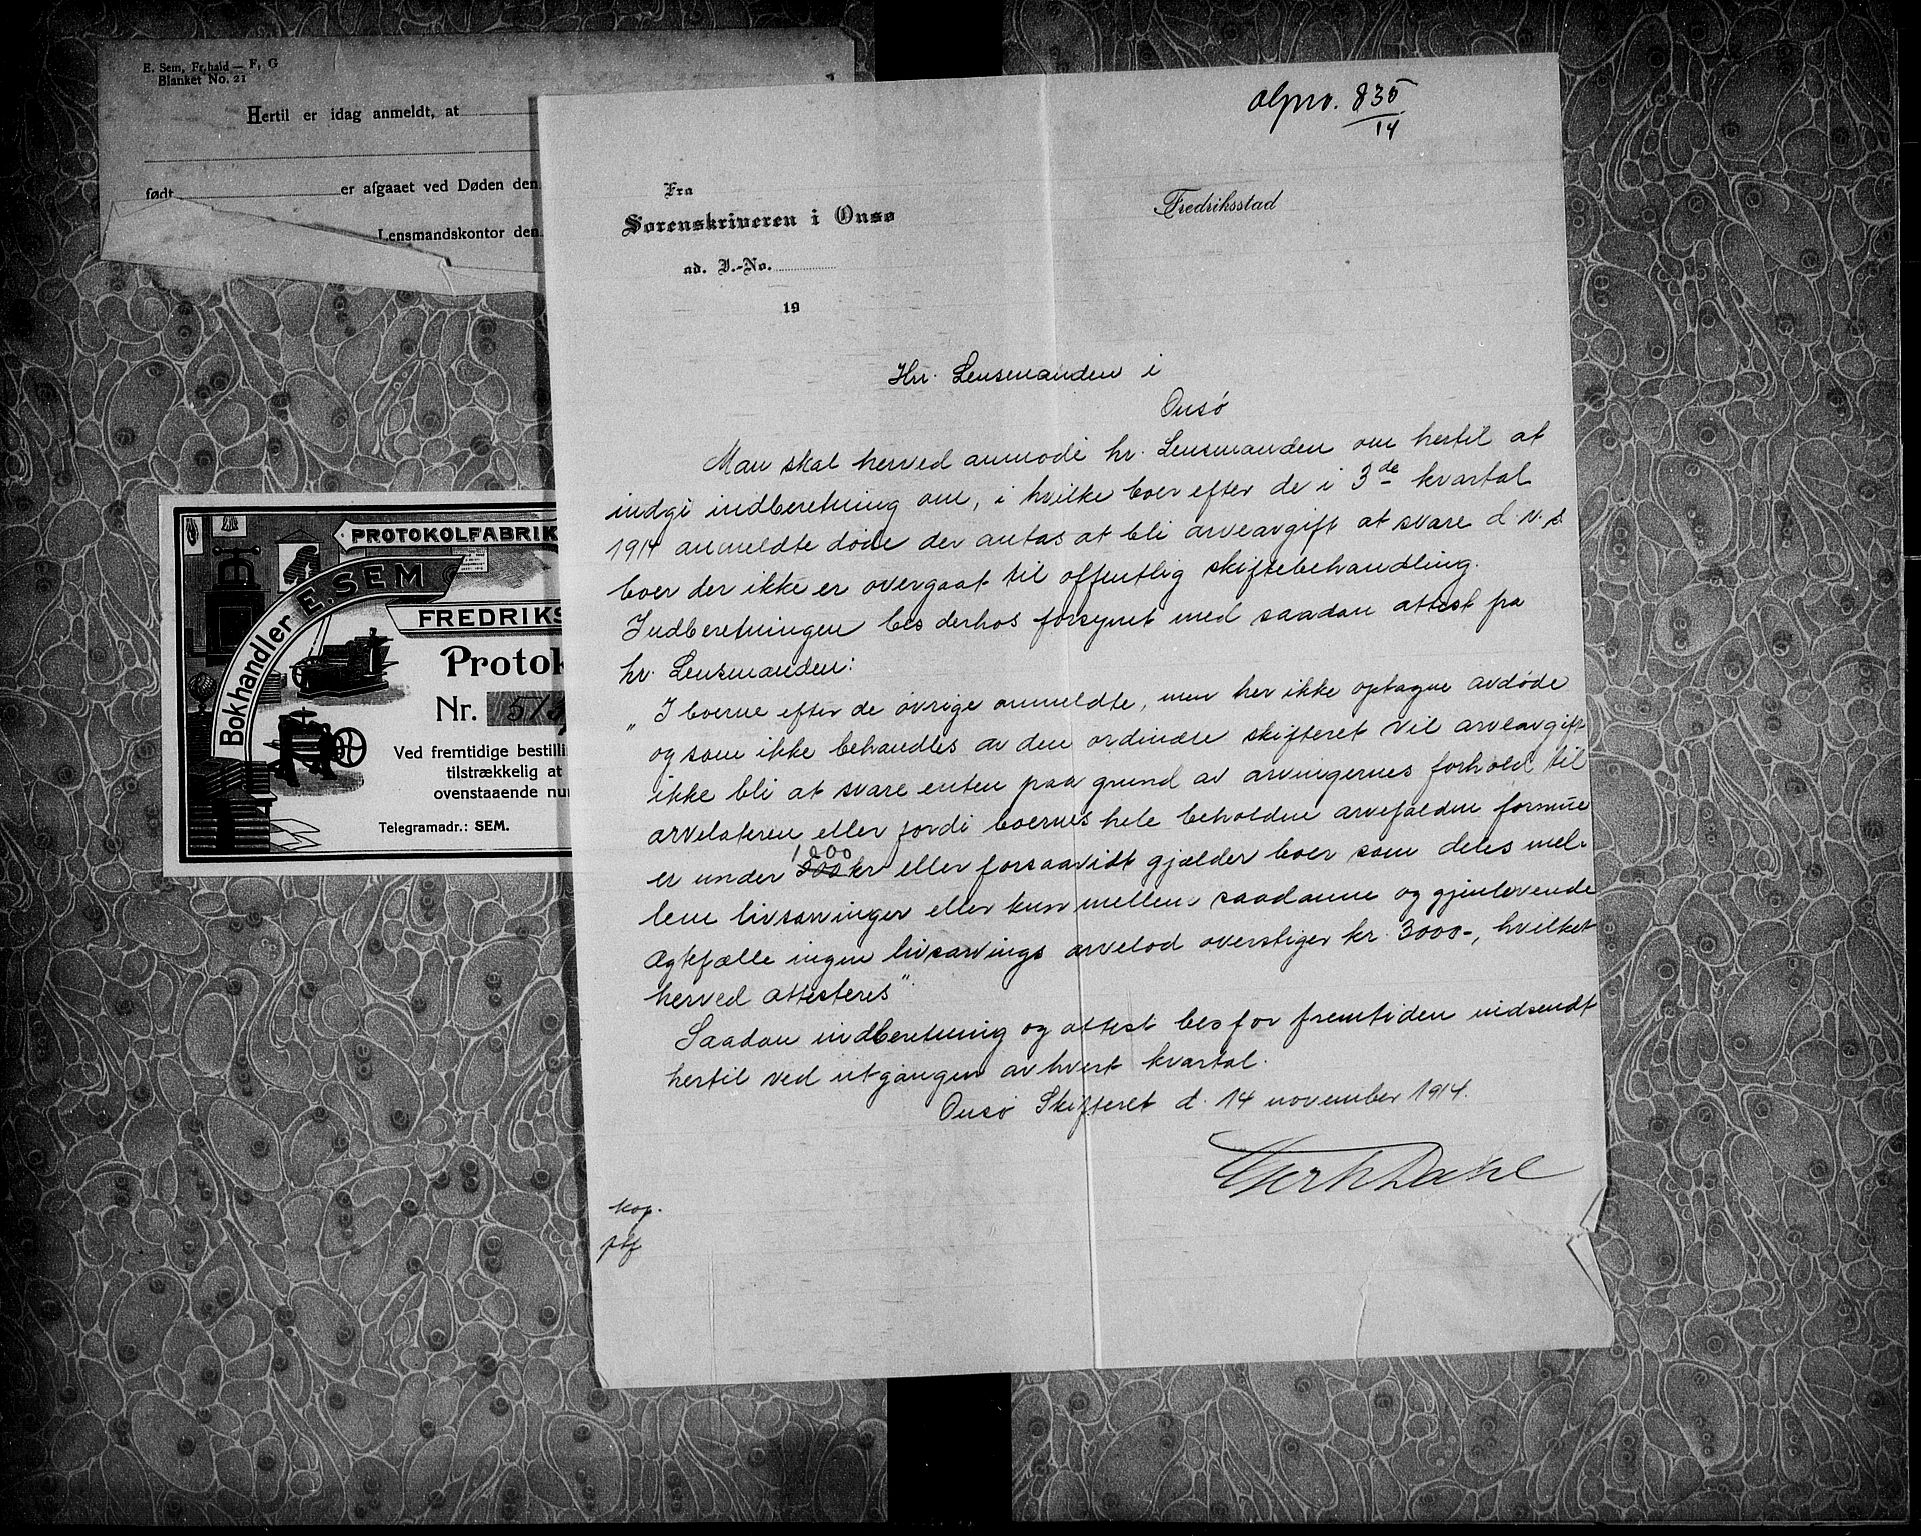 E. Sem, Fr.hald — F. G
Blanket No. 21
Hertil er idag anmeldt, at
født er afgaaet ved Døden den
Lensmandskontor den
PROTOKOLFABRIK
Bokhandler E. SEM
FREDRIKS
Protok
Nr.
Ved fremtidige bestill
tilstrækkelig at
ovenstaaende nu
Telegramadr.: SEM.
835
14
Fra
Sorenskriveren i Onsø
ad. J.-No.
19
Fredriksstad
Hr. Lensmanden i
Onsø
Man skal herved anmode hr. Lensmanden om hertil at
indgi indberetning om, i hvilke boer efter de i 3de kvartal
1914 anmeldte døde der antas at bli arveavgift at svare d.v.s.
boer der ikke er overgaat til offentlig skiftebehandling.
Indberetningen bes derhos forsynet med saadan attest fra
hr. Lensmanden:
"I boerne efter de øvrige anmeldte, men her ikke optagne avdøde
og som ikke behandles av den ordinære skifteret vil arveavgift
ikke bli at svare enten paa grund av arvingernes forhold til
arvelateren eller fordi boernes hele beholdne arvefaldne formue
1000
er under 200 kr eller forsaavidt gjælder boer som deles mel-
lem livsarvinger eller kun mellem saadanne og gjenlevende
ægtefælle ingen livsarvings arvelod overstiger kr. 3000-, hvilket
herved attesteres"
Saadan indberetning og attest bes for fremtiden indsendt
hertil ved utgangen av hvert kvartal.
Onsø Skifteret d. 14 november 1914.
Dahl
kop.